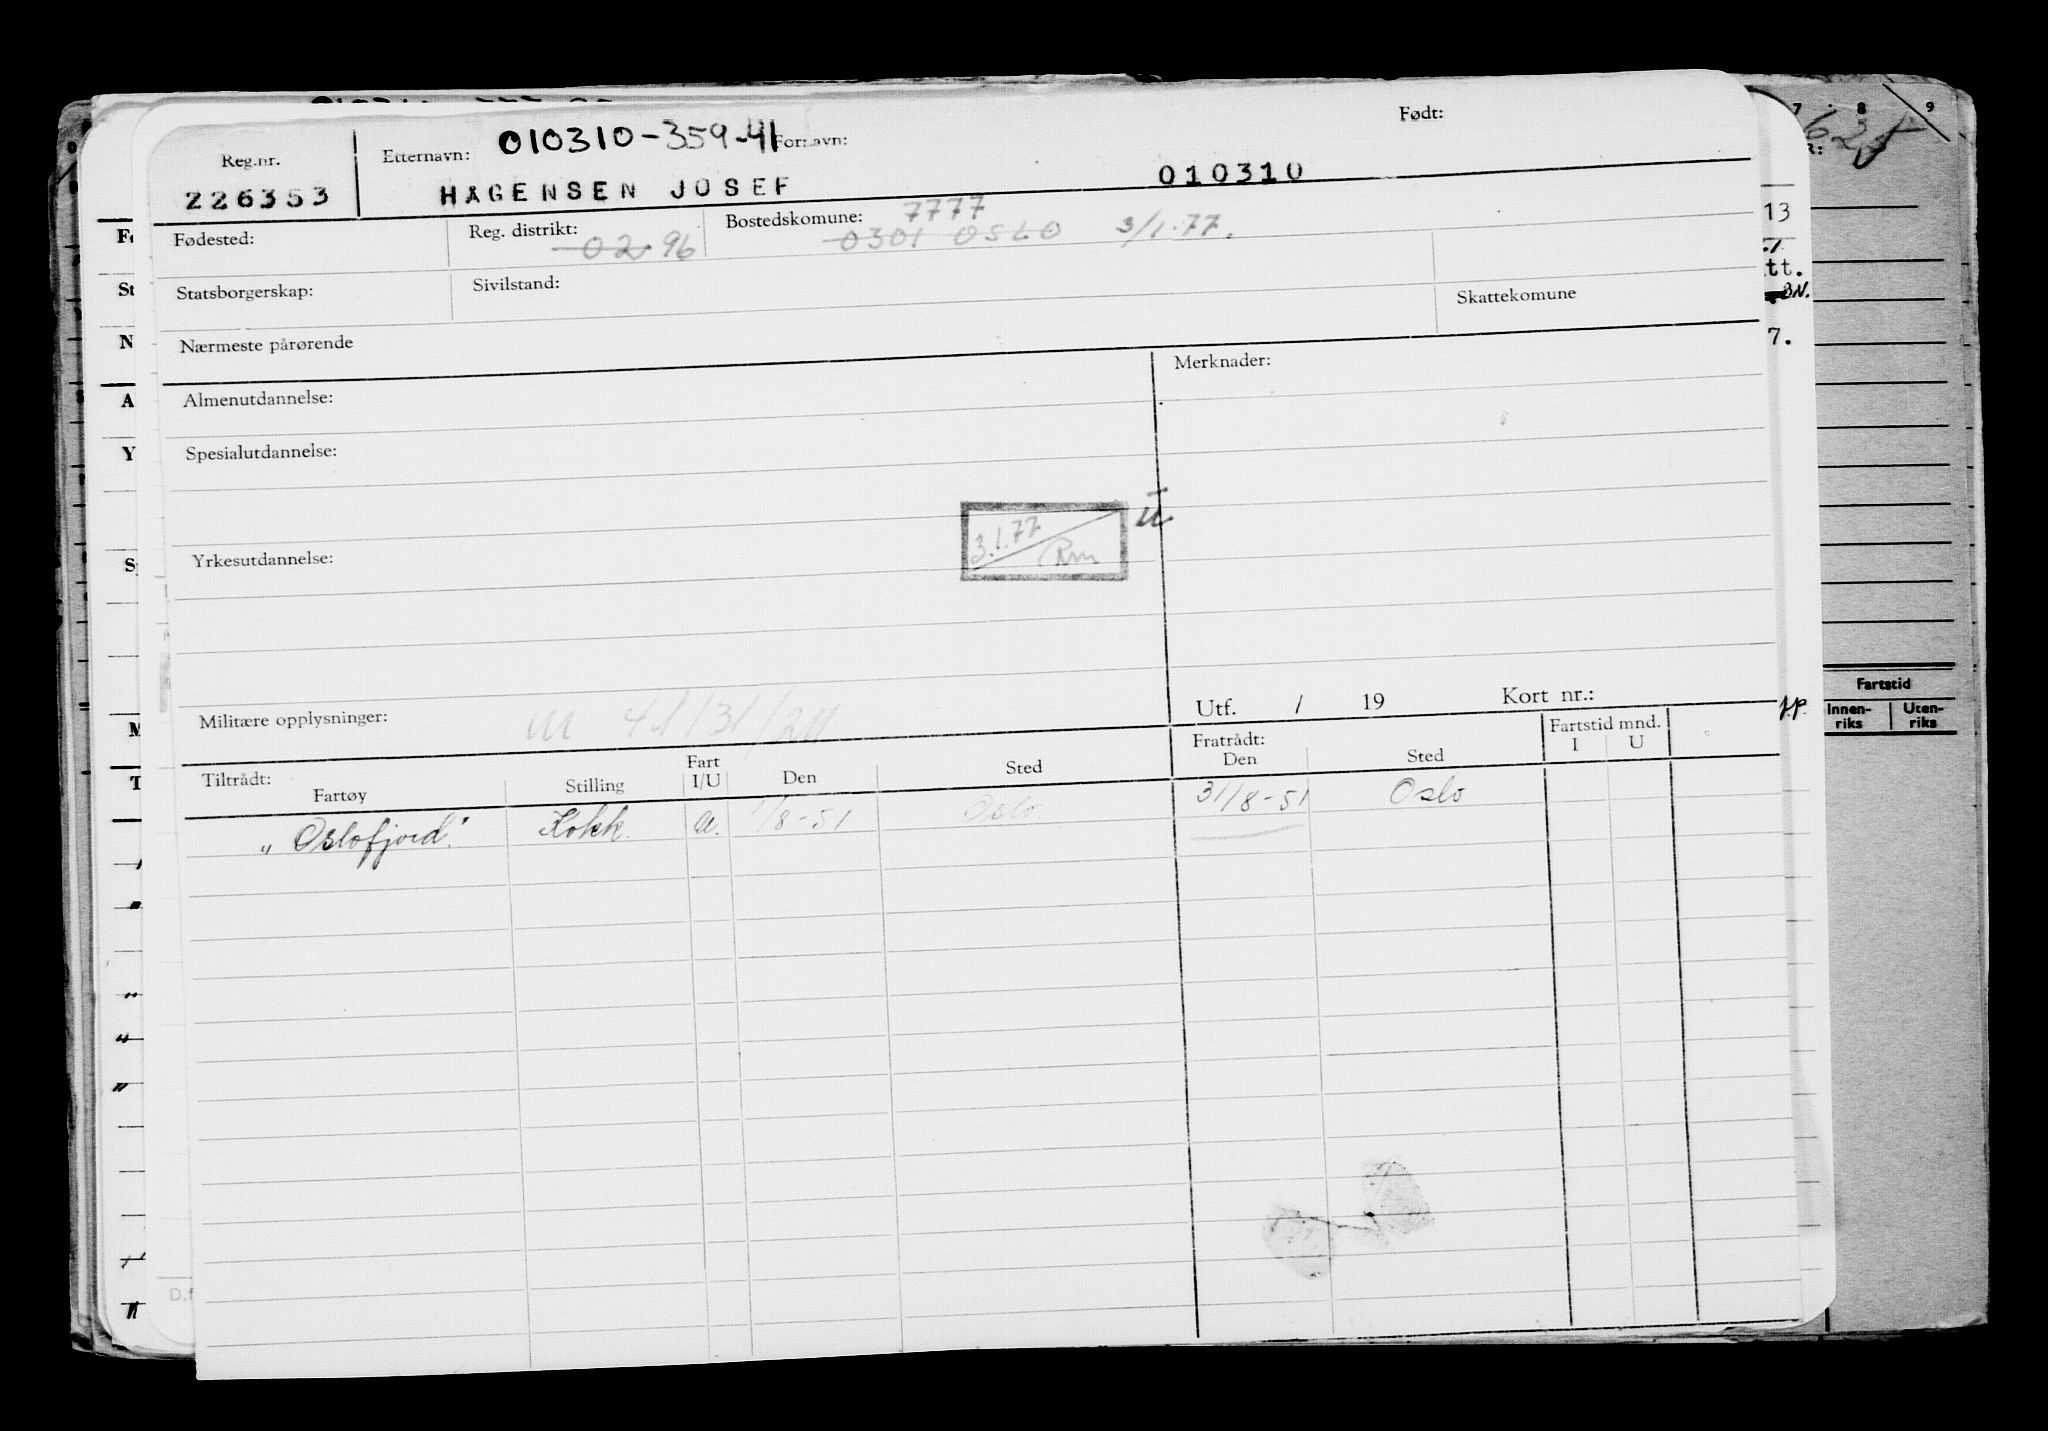 010310-359-41 Født:
Reg.nr. Etternavn: Fornavn:
226353 HAGENSEN JOSEF 010310
Fødested: Reg. distrikt: 02 96 Bostedskomune: 7777
0301 OSLO 3/1.77.
Statsborgerskap: Sivilstand: Skattekomune
Nærmeste pårørende
Almenutdannelse: Merknader:
Spesialutdannelse:
3.1.77 Rm II
Yrkesutdannelse:
Militære opplysninger: Utf. / 19 Kort nr.:
Tiltrådt: Fratrådt: Fartstid mnd.
Fartøy Stilling Fart I/U Den Sted Den Sted I U
"Oslofjord" Kokk. U. 1/8-51 Oslo. 31/8-51 Oslo
7 8 9
13
tt.
BN.
7.
Fartstid
Innen-riks Uten-riks